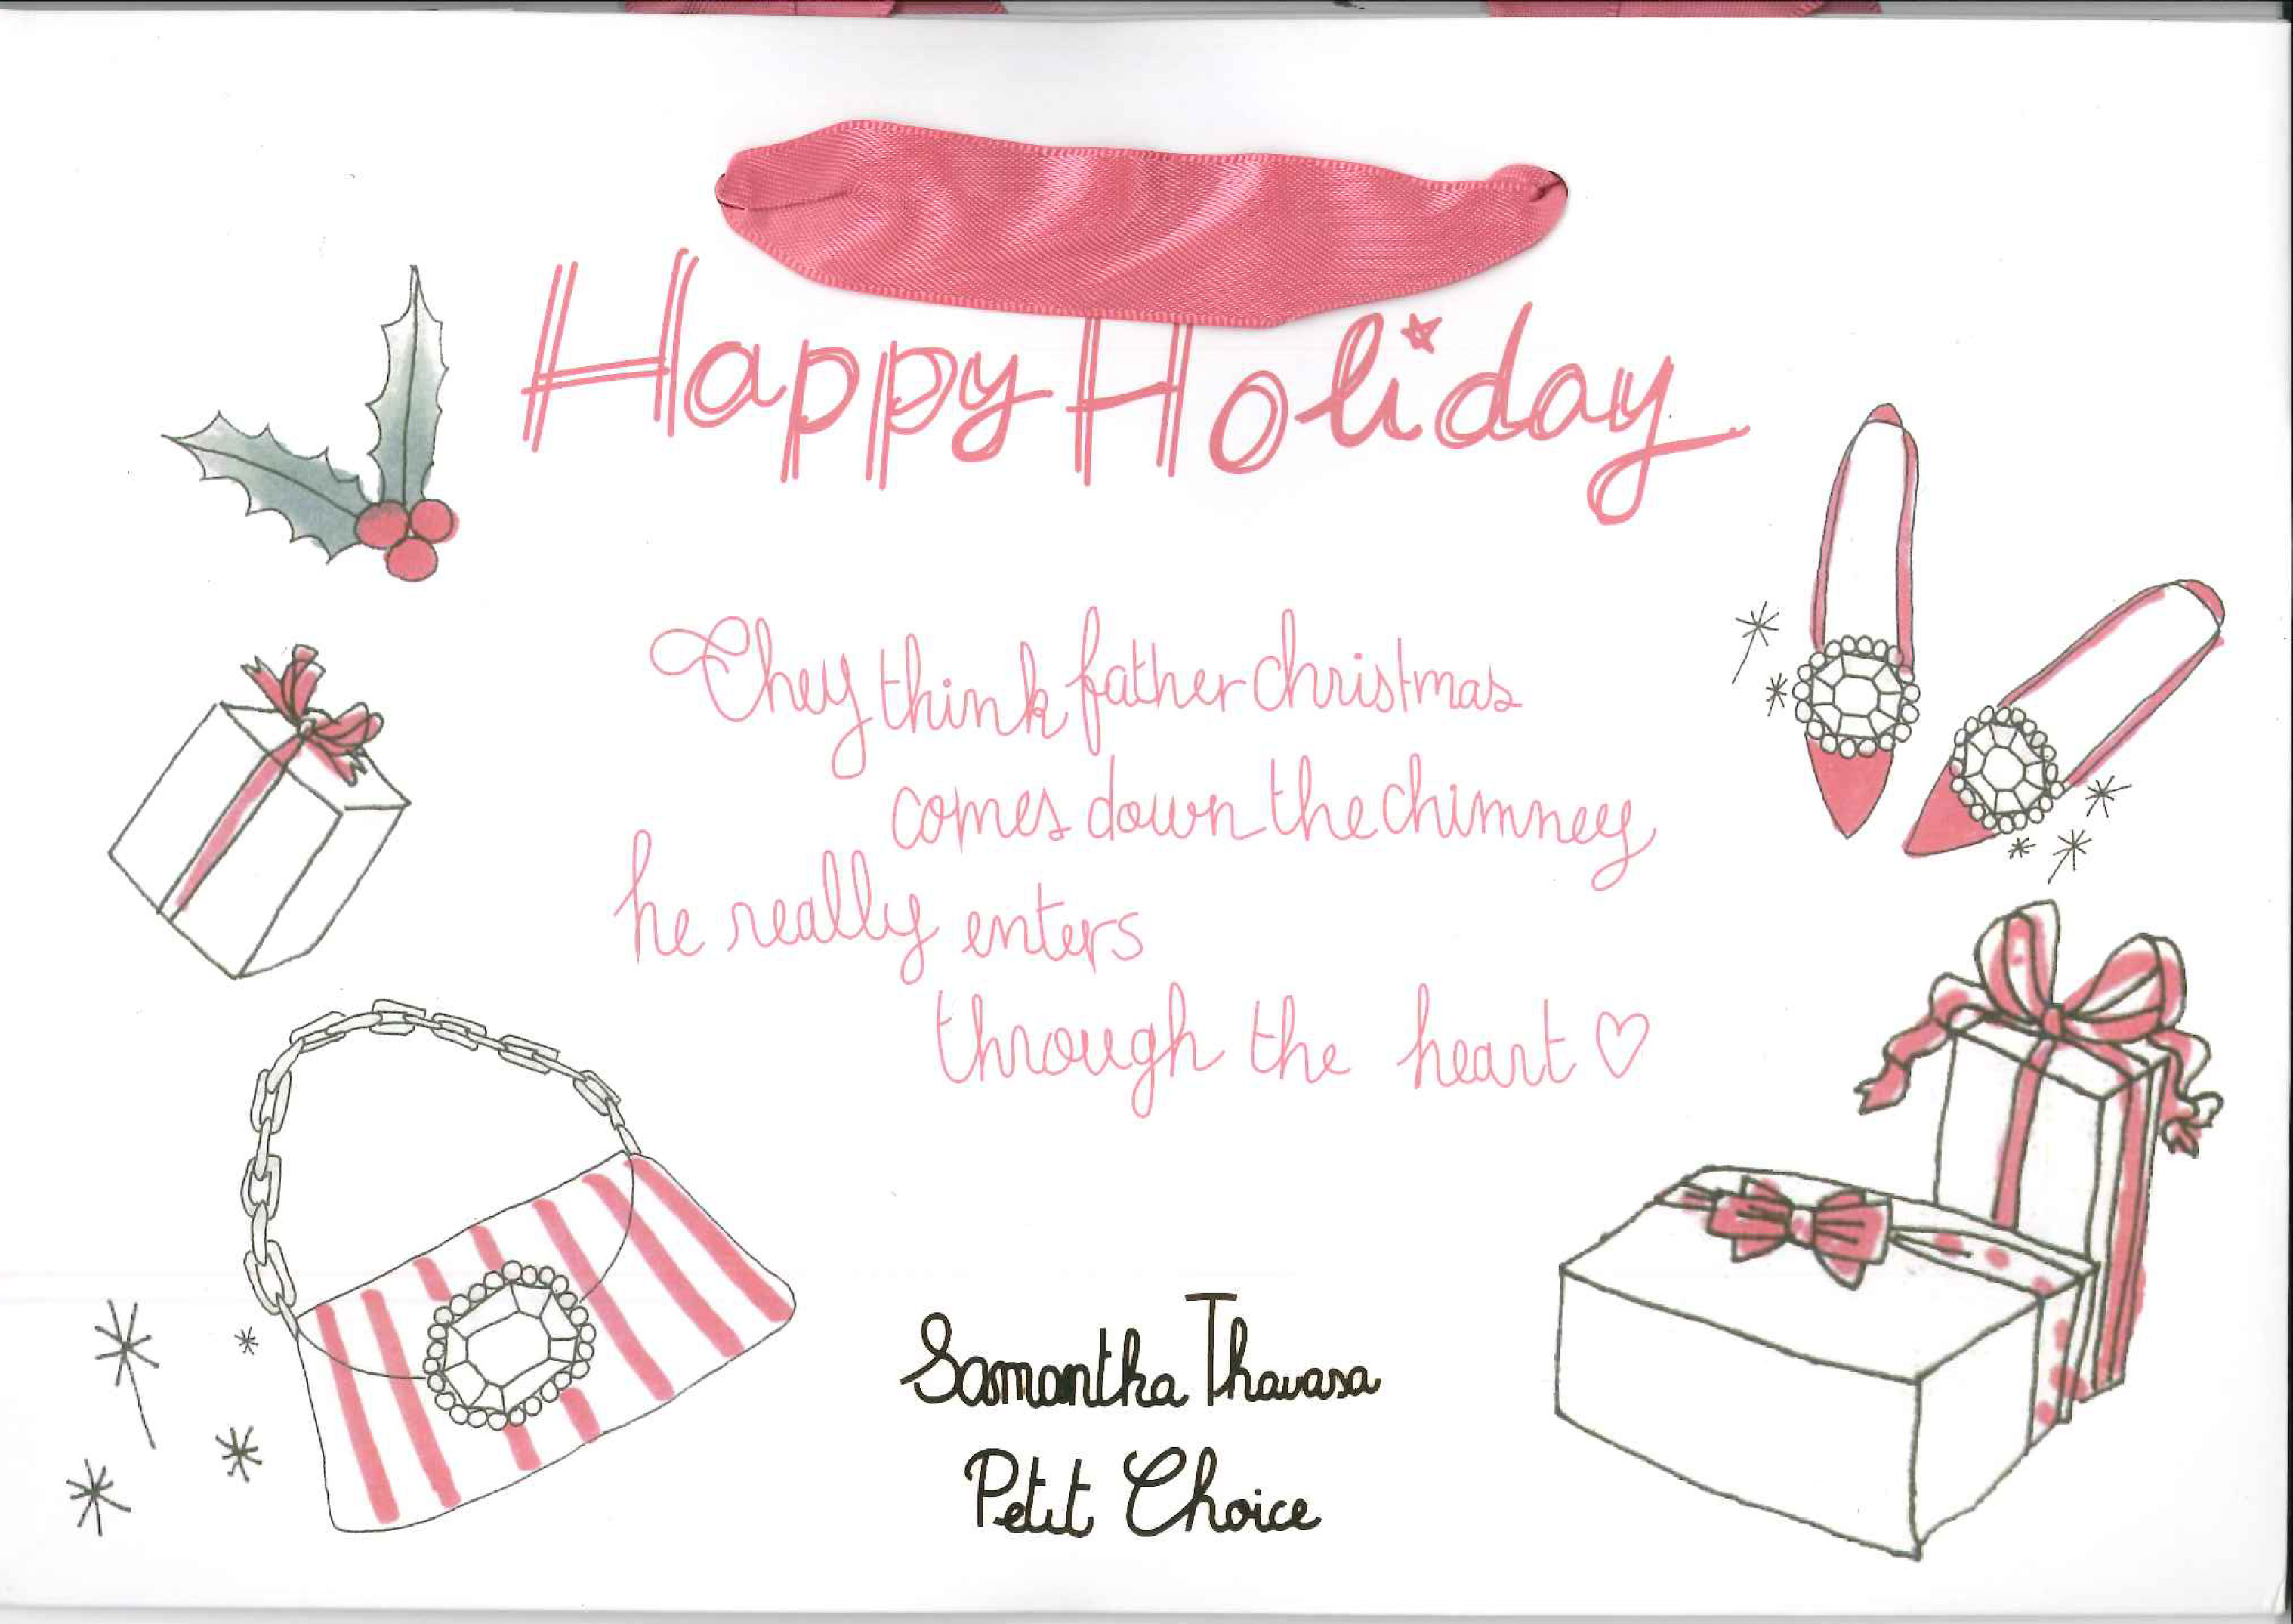 Happy Holiday
They think father christmas
comes down the chimney
he really enters
through the heart ♡
Samantha Thavasa
Petit Choice